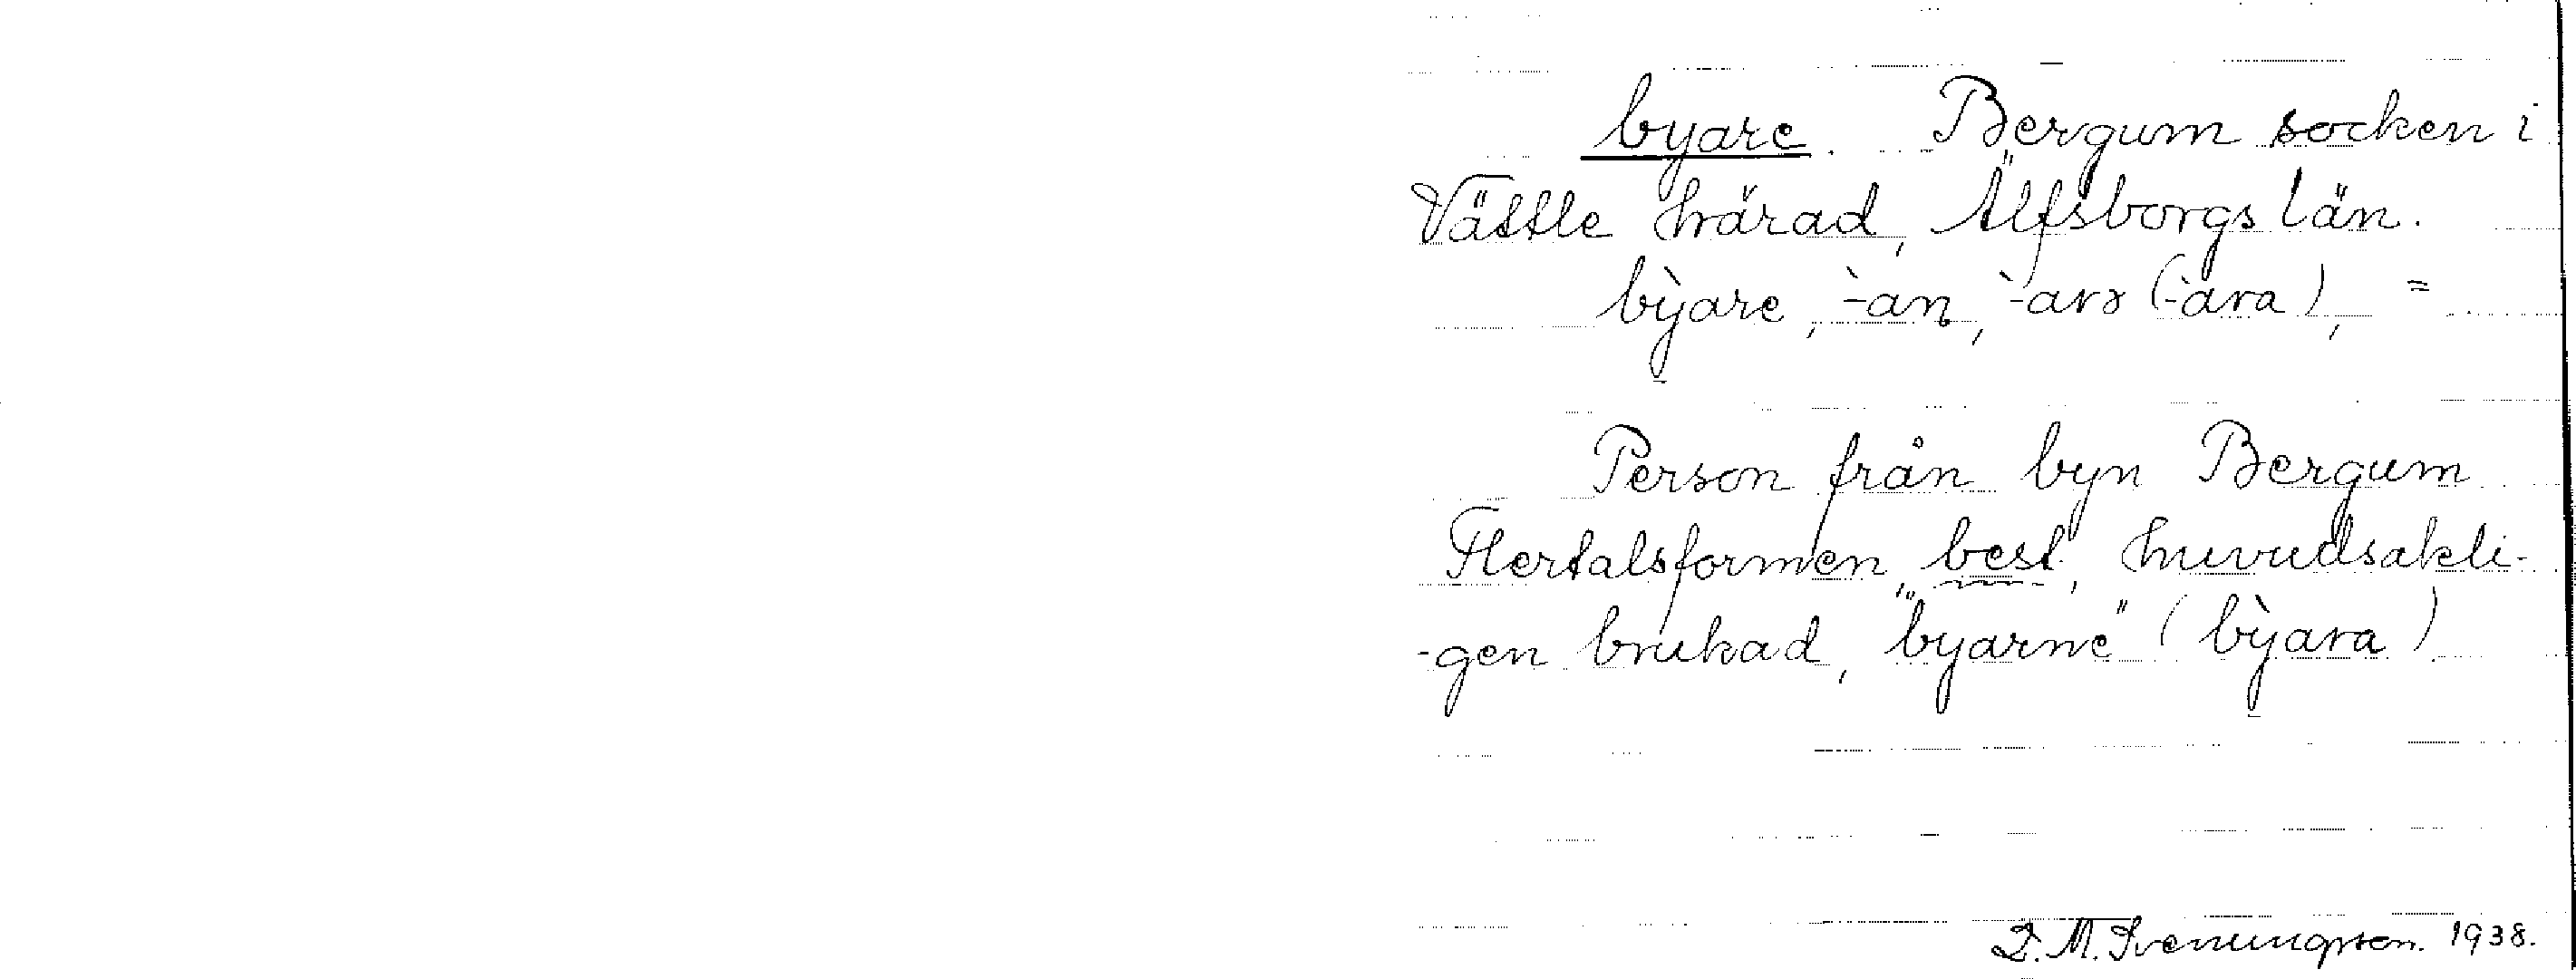 byare. Bergum socken i
Vättle härad, Älfsborgs län.
bỳare, -̀an, -̀arə (-̀ara), =
Person från byn Bergum
Flertalsformen, best, huvudsakli-
-gen brukad, "byarne" (bỳara)
D. M. Svenungsson. 1938.